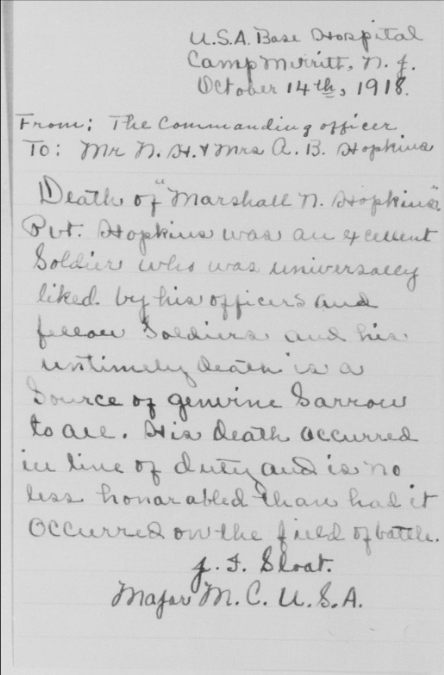 U.S.A. Base Hospital
Camp Merritt, N. J.
October 14th, 1918.
From: The Commanding officer
To: Mr N. H. & Mrs A. B. Hopkins
Death of "Marshall N. Hopkins"
Pvt. Hopkins was an excellent
Soldier who was universally
liked by his officers and
fellow Soldiers and his
untimely death is a
Source of genuine Sarrow
to all. His death occurred
in line of duty and is no
less honarabled than had it
occurred on the field of battle.
J. F. Sloat.
Major M. C. U. S. A.